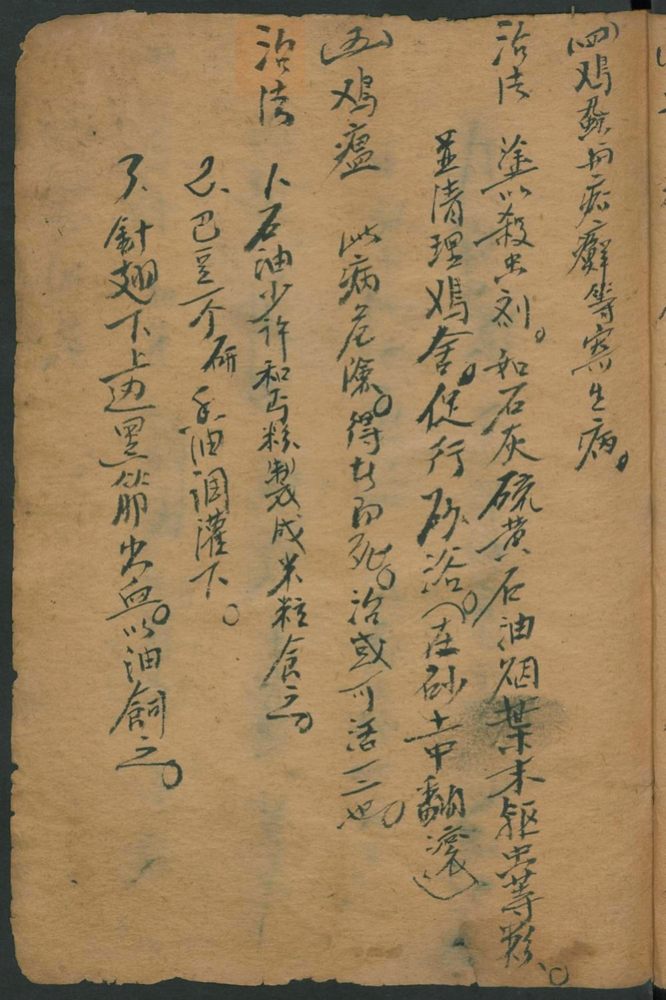 (四)鳮虱角疮癬等寄生病。
治法 塗以殺虫剂。如石灰硫黄石油烟葉末驅虫等類。
並清理鳮舍。促行砂浴。(在砂土中翻滚)
(五)鳮瘟 此病危險。得者即死。治或可活一二也。
治法 1、石油少許和丐粉製成米粒食之。
2、巴豆一个研香油調灌下。
3、針翅下上边黑筋出血。以油飼之。